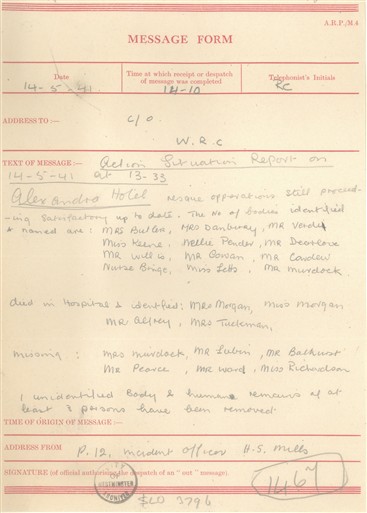 A.R.P./M 4
MESSAGE FORM
Date
14-5-41.
Time at which receipt or despatch of message was completed
14-10
Telephonist's Initials
RC
ADDRESS TO :—
C/O.
W.R.C
TEXT OF MESSAGE :— Action Situation Report on
14-5-41 at 13-33
Alexandra Hotel rescue operations still proceed-
-ing satisfactory up to date. The No of bodies identified
& named are: MRS Butler, MRS Danbury, MR
Miss Keene, Nellie Pender, MR Dearlove
MR Willis, MR Cowan, MR Carolew
Nurse Brige, Miss Letts, MR Murdock.
died in Hospital & identified: MRS Morgan, Miss Morgan
MR Alfrey, MRS Tuckman,
Missing: MRS Murdock, MR Lubin, MR Bathurst
MR Pearce, MR Ward, Miss Richardson
1 unidentified Body & human remains of at
least 3 persons have been removed.
TIME OF ORIGIN OF MESSAGE :—
ADDRESS FROM P.12, Incident Officer A.S. Mills
SIGNATURE (of official authorising the despatch of an "out" message).
1467
WESTMINSTER
3796